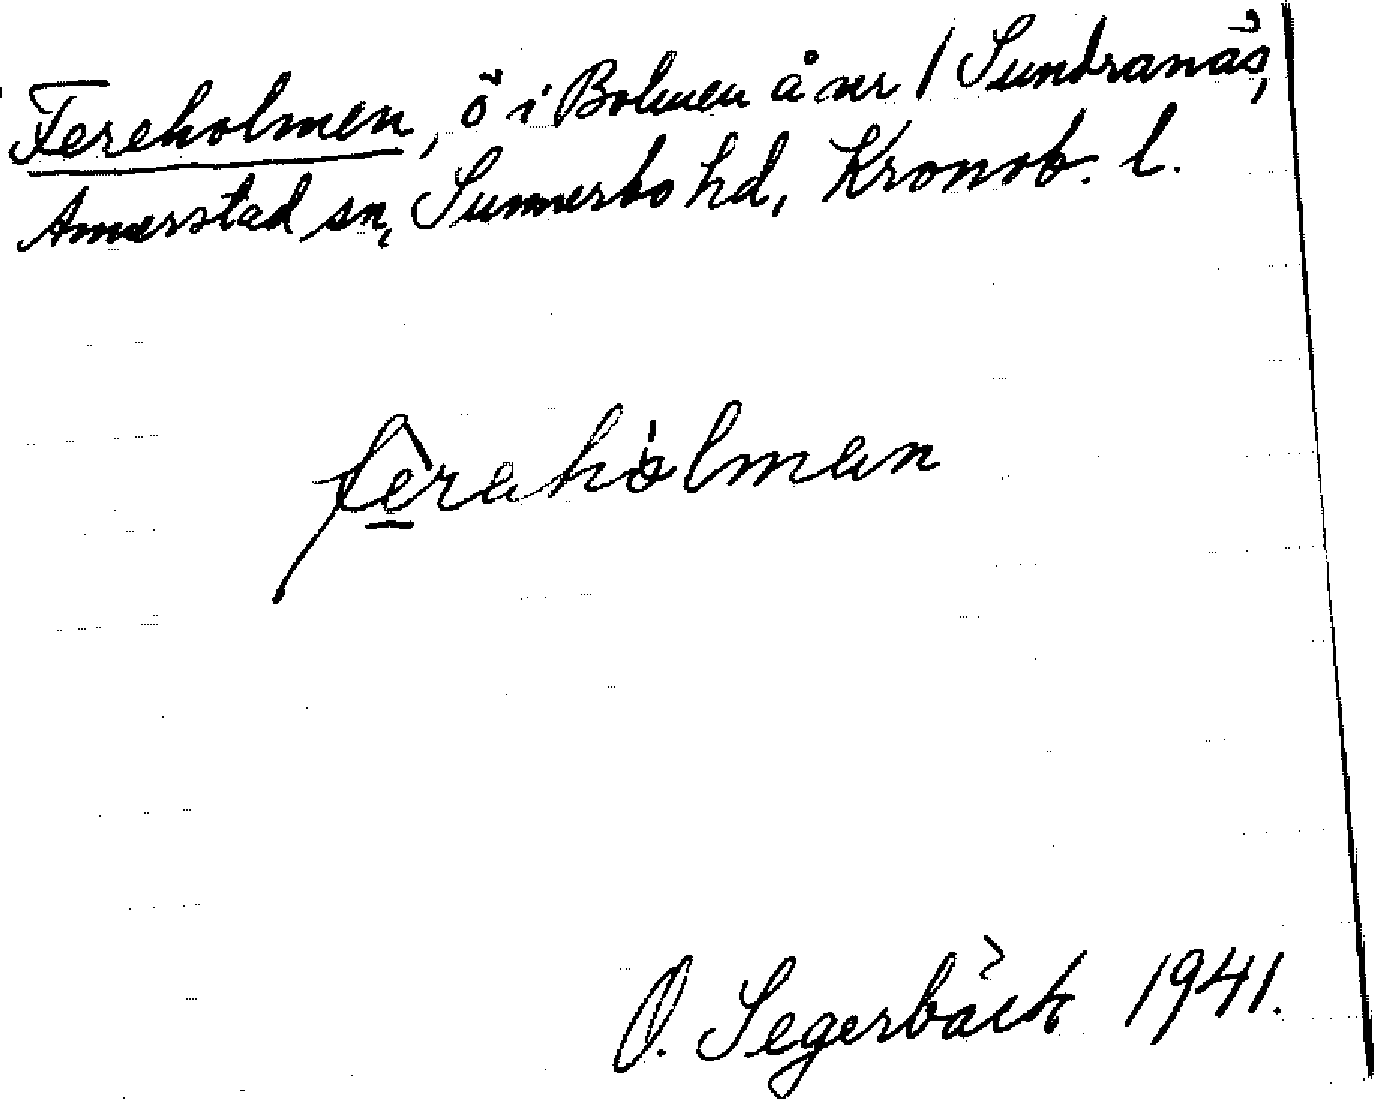 Fereholmen, ö i Bolmen å nr 1 Sundranäs,
Annerstad sn, Sunnerbo hd, Kronob. l.
feraholman
O. Segerbäck 1941.